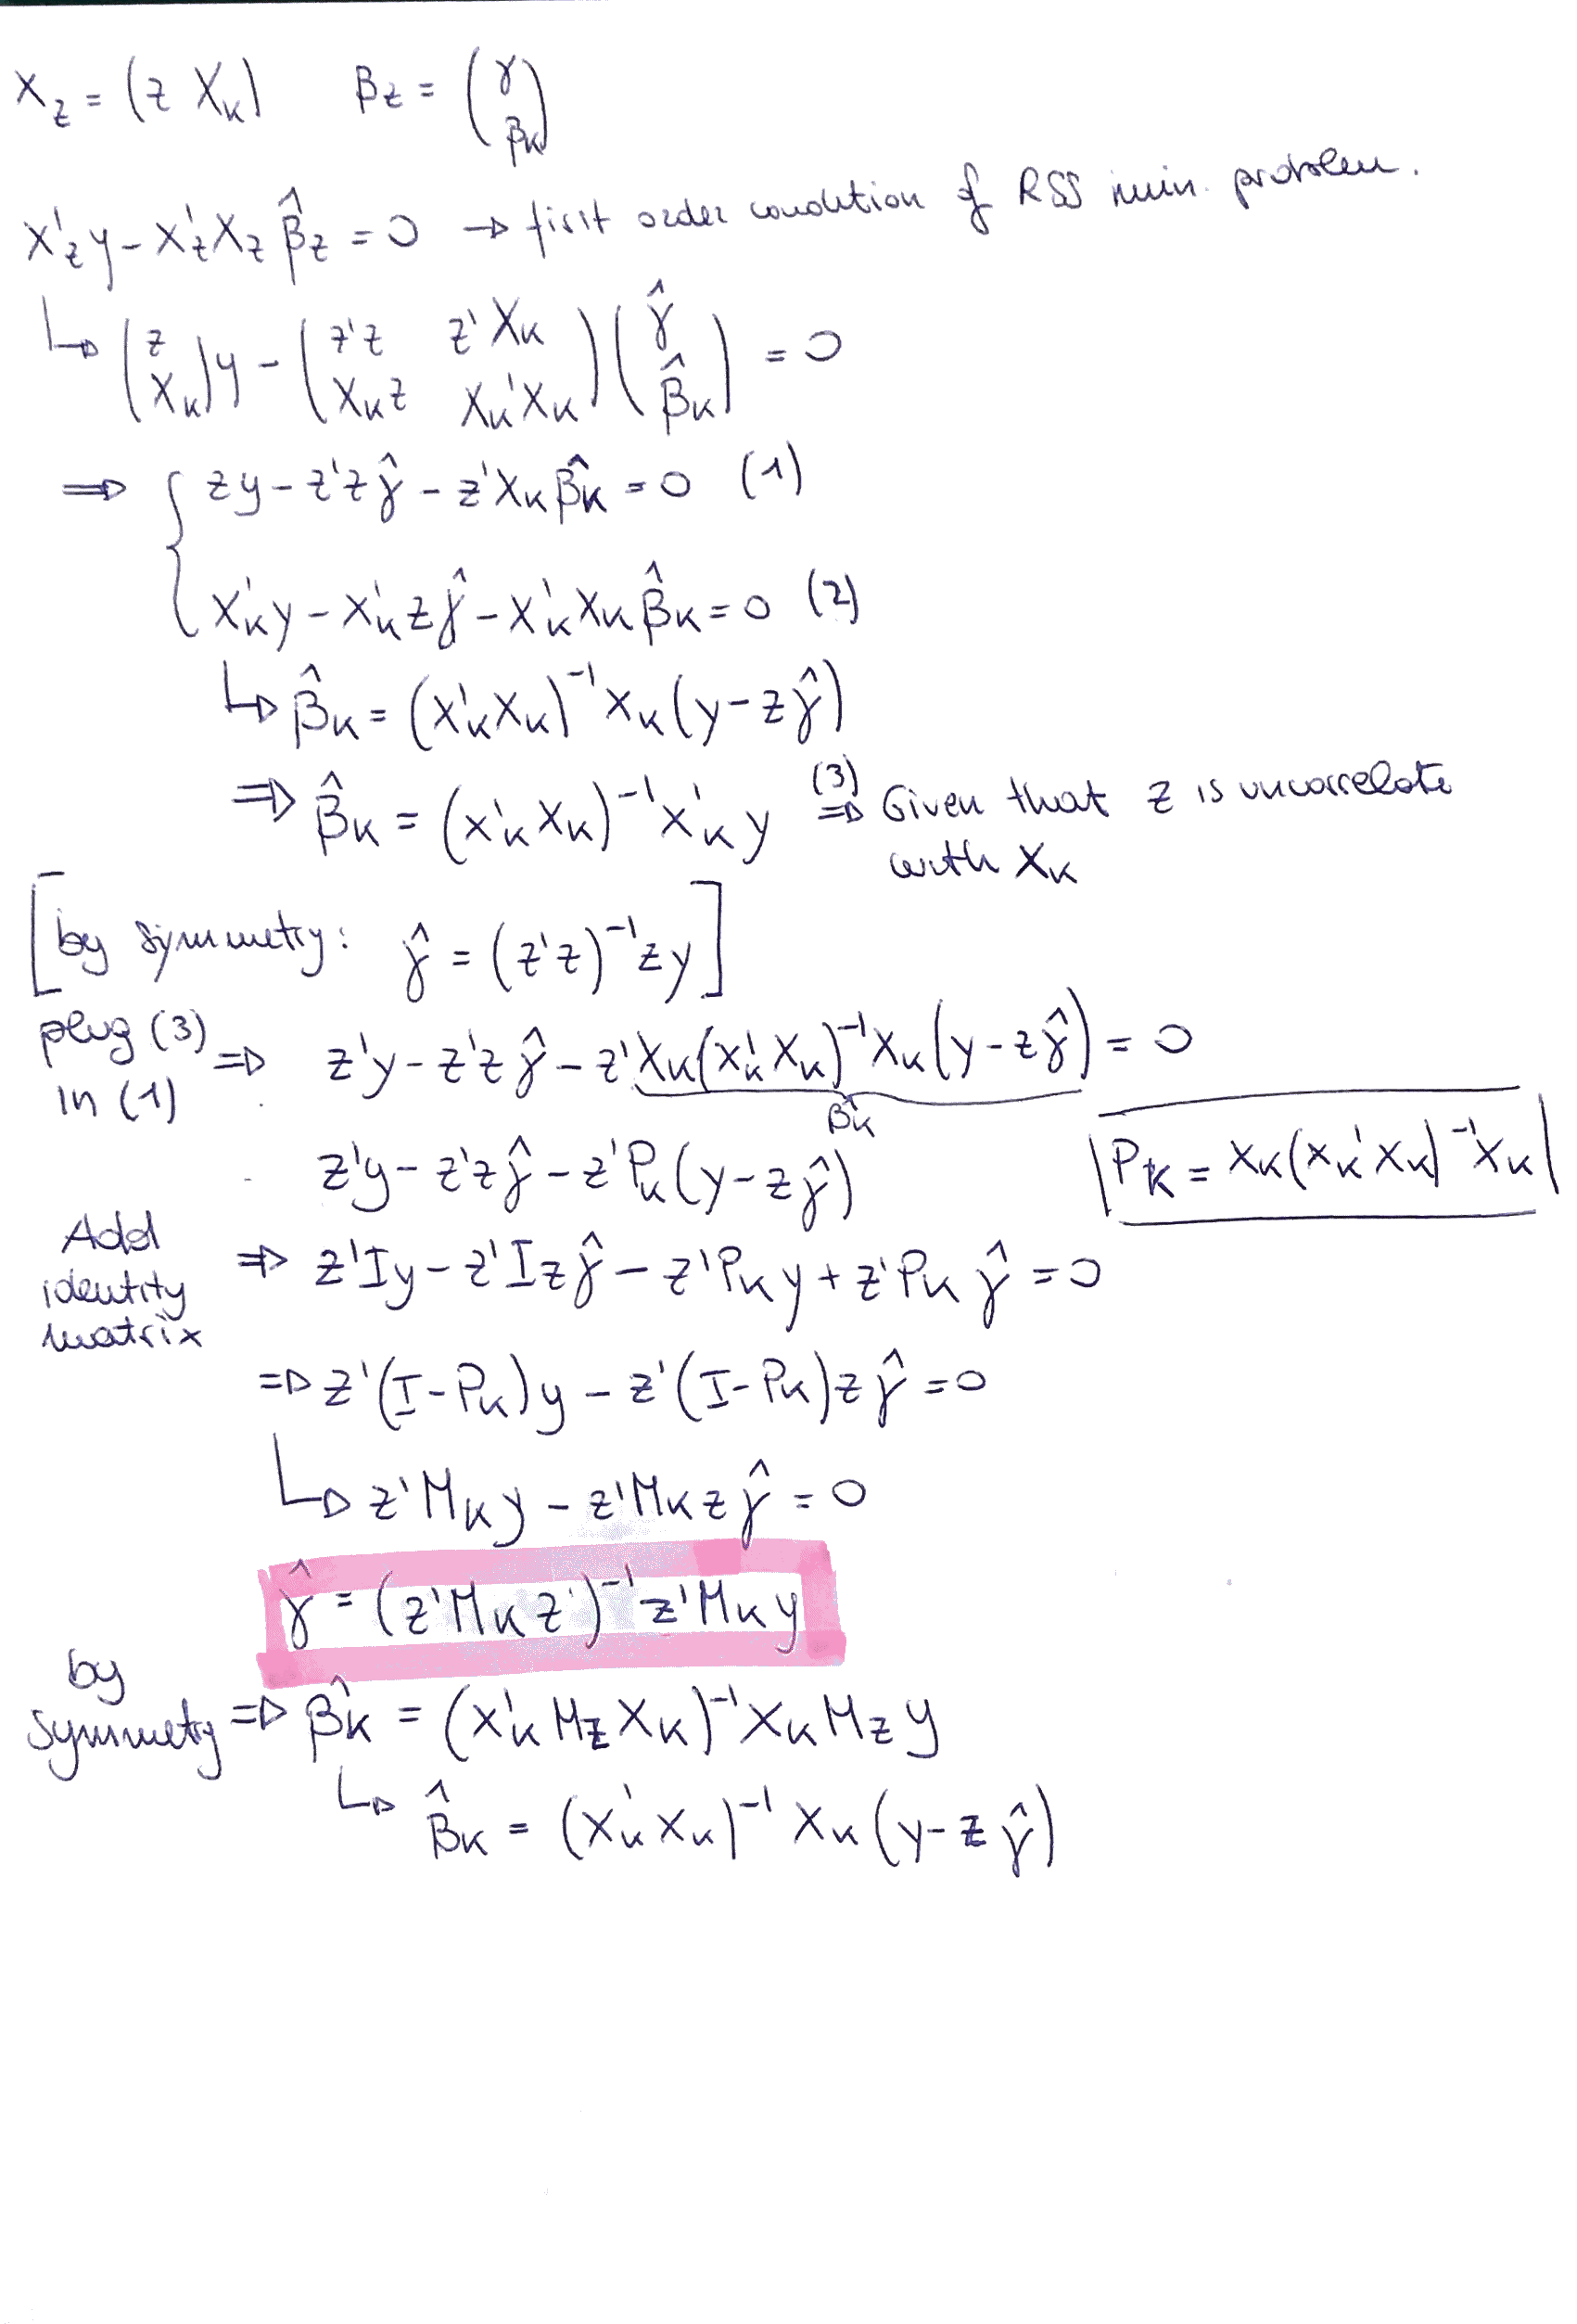 X_z = (z X_k)   β_z = (γ β_k)
X'_z y - X'_z X_z β̂_z = 0 → first order condition of RSS min. problem.
↳ (z X_k) y - (z'z  z'X_k  X_k z  X_k'X_k) (γ̂ β̂_k) = 0
⇒ { zy - z'z γ̂ - z'X_k β̂_k = 0 (1)
X'_k y - X'_k z γ̂ - X'_k X_k β̂_k = 0 (2)
↳ β̂_k = (X'_k X_k)⁻¹ X_k (y - z γ̂)
⇒ β̂_k = (X'_k X_k)⁻¹ X'_k y (3) ⇒ Given that z is uncorrelate
with X_k
[by symmetry: γ̂ = (z'z)⁻¹ z y]
plug (3) in (1) ⇒ z'y - z'z γ̂ - z'X_k (X'_k X_k)⁻¹ X_k (y - z γ̂) = 0
β̂_k
z'y - z'z γ̂ - z'P_k (y - z γ̂)
P_k = X_k (X_k' X_k)⁻¹ X_k
Add identity matrix ⇒ z'Iy - z'Iz γ̂ - z'P_k y + z'P_k γ̂ = 0
⇒ z'(I - P_k) y - z'(I - P_k) z γ̂ = 0
↳ z'M_k y - z'M_k z γ̂ = 0
γ̂ = (z'M_k z)⁻¹ z'M_k y
by symmetry ⇒ β̂_k = (X'_k M_z X_k)⁻¹ X_k M_z y
↳ β̂_k = (X'_k X_k)⁻¹ X_k (y - z γ̂)